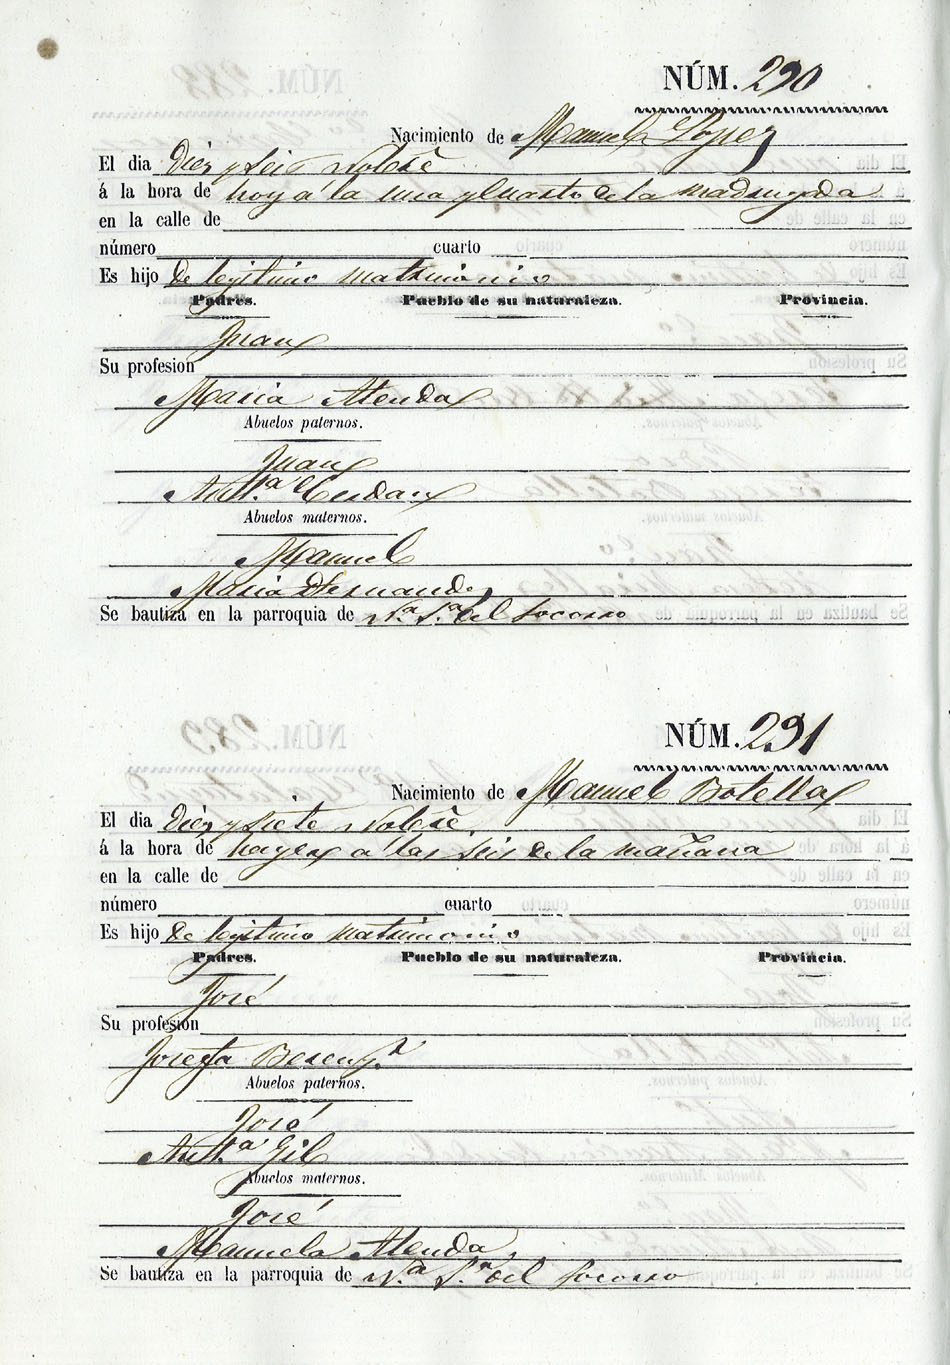 NÚM. 290
Nacimiento de Manuela Lopez
El dia Diez y seis Nobbrê
á la hora de hoy á la una y cuarto de la madrugada
en la calle de
número cuarto
Es hijo de legitimo matrimonio
Padres. Pueblo de su naturaleza. Provincia.
Juan
Su profesion
Maria Atenda
Abuelos paternos.
Juan
Antª Cerdan
Abuelos maternos.
Manuel
Maria Hernandez
Se bautiza en la parroquia de Nª Sª del Socorro
NÚM. 291
Nacimiento de Manuel Botella
El dia Diez y siete Nobbrê.
á la hora de hayer á las seis de la mañana
en la calle de
número cuarto
Es hijo de legitimo matrimonio
Padres. Pueblo de su naturaleza. Provincia.
José
Su profesion
Josefa Berengr
Abuelos paternos.
José
Antª Gil
Abuelos maternos.
José
Manuela Atenda.
Se bautiza en la parroquia de Nª Sª del Socorro